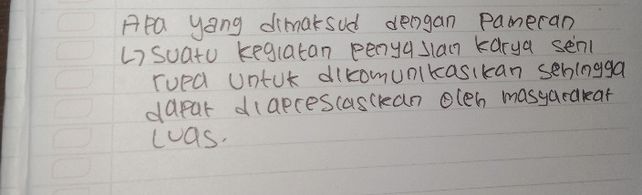 Apa yang dimaksud dengan Pameran
↳ Suatu kegiatan penyajian karya seni
rupa untuk dikomunikasikan sehingga
dapat diapresiasikan oleh masyarakat
Luas.